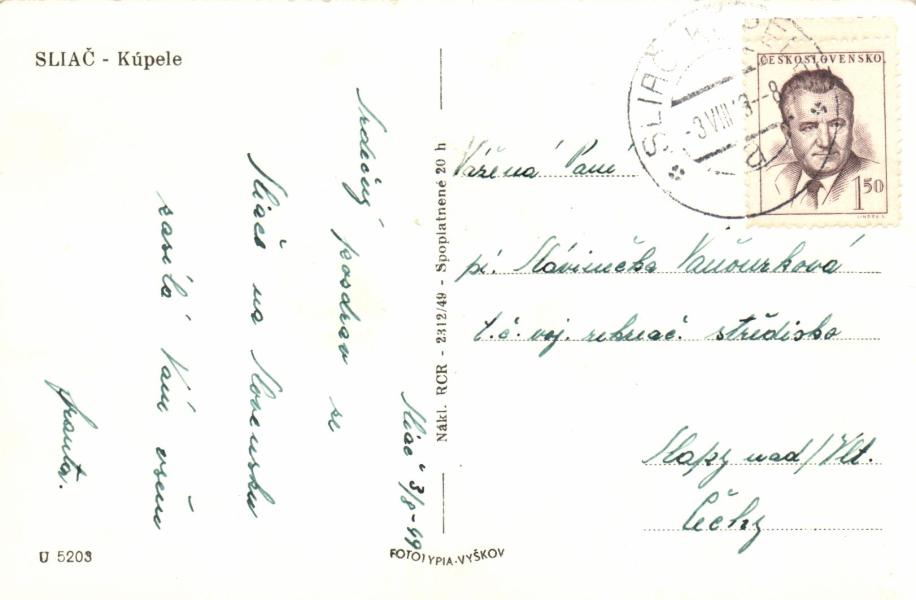 SLIAČ - Kúpele
Sliač 3/8-49
Srdečný pozdrav ze
Sliače na Slovensku
zasílá Vám všem
Franta.
U 5203
Nákl. RCR - 2312/49 - Spoplatnené 20 h
FOTOTYPIA-VYŠKOV
SLIAČ KÚPELE
-3.VIII.49--8
ČESKOSLOVENSKO
1 50
Vážená Paní
pí. Slávinečka Vaňourková
t.č. voj. rekreač. středisko
Slapy nad/Vlt.
Čechy